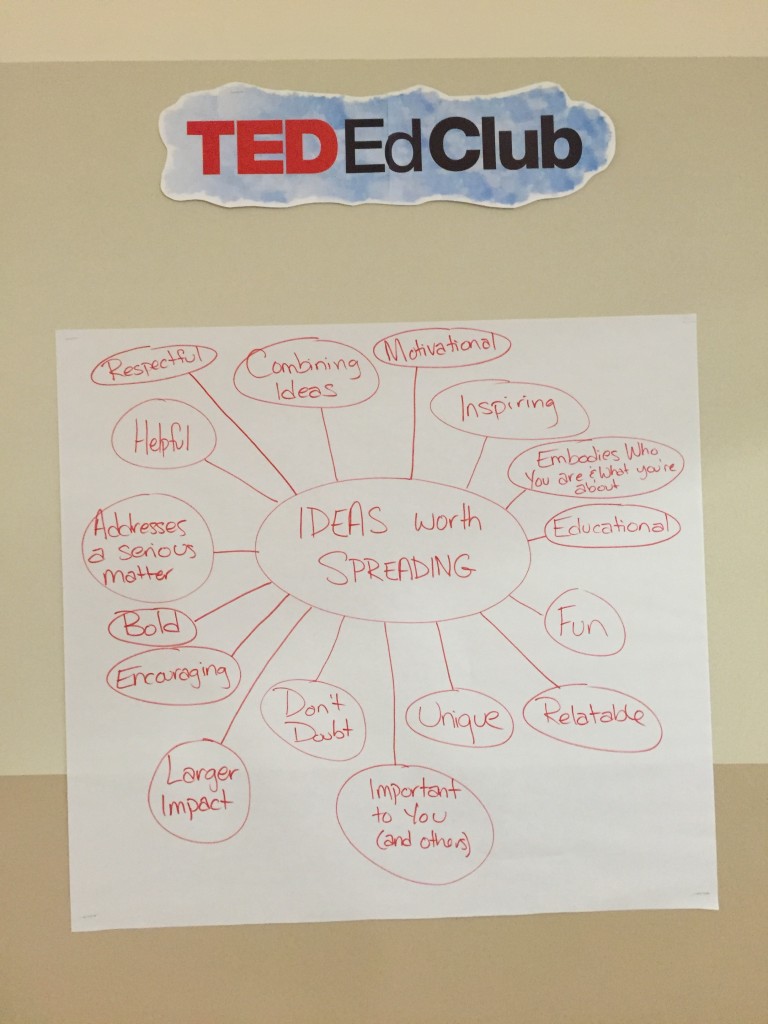 TEDEdClub
Respectful
Combining
Ideas
Motivational
Inspiring
Helpful
Embodies Who
You are & What you're
about
IDEAS worth
SPREADING
Educational
Addresses
a serious
matter
Bold
Fun
Encouraging
Don't
Doubt
Unique
Relatable
Larger
Impact
Important
to You
(and others)